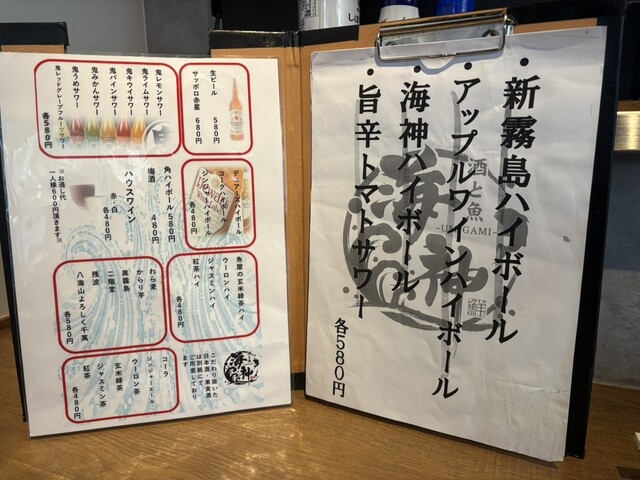 生ビール 580円
サッポロ赤星 680円
鬼レモンサワー
鬼ライムサワー
鬼キウイサワー
鬼パインサワー
鬼みかんサワー
鬼うめサワー
鬼レッドグレープフルーツサワー
各580円
デュワーズハイボール
コークハイボール
ジンジャーハイボール
各480円
角ハイボール 580円
梅酒 480円
ハウスワイン
赤・白
各480円
※お通し代
一人様600円頂きます※
魚屋の玄米緑茶ハイ
ウーロンハイ
ジャスミンハイ
紅茶ハイ
各480円
わら麦
からり芋
黒霧島
二階堂
残波
八海山よろしく千萬
各580円
こだわり抜いた
日本酒・果実酒
は別紙にて
ご用意しており
ます
海神
コーラ
ジンジャーエール
ウーロン茶
玄米緑茶
ジャスミン茶
紅茶
各480円
・新霧島ハイボール
・アップルワインハイボール
・海神ハイボール
・旨辛トマトサワー
各580円
酒と魚
海神
鮮